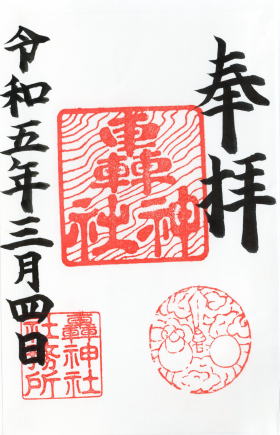 奉拝
轟神社
令和五年三月四日
轟神社
社務所